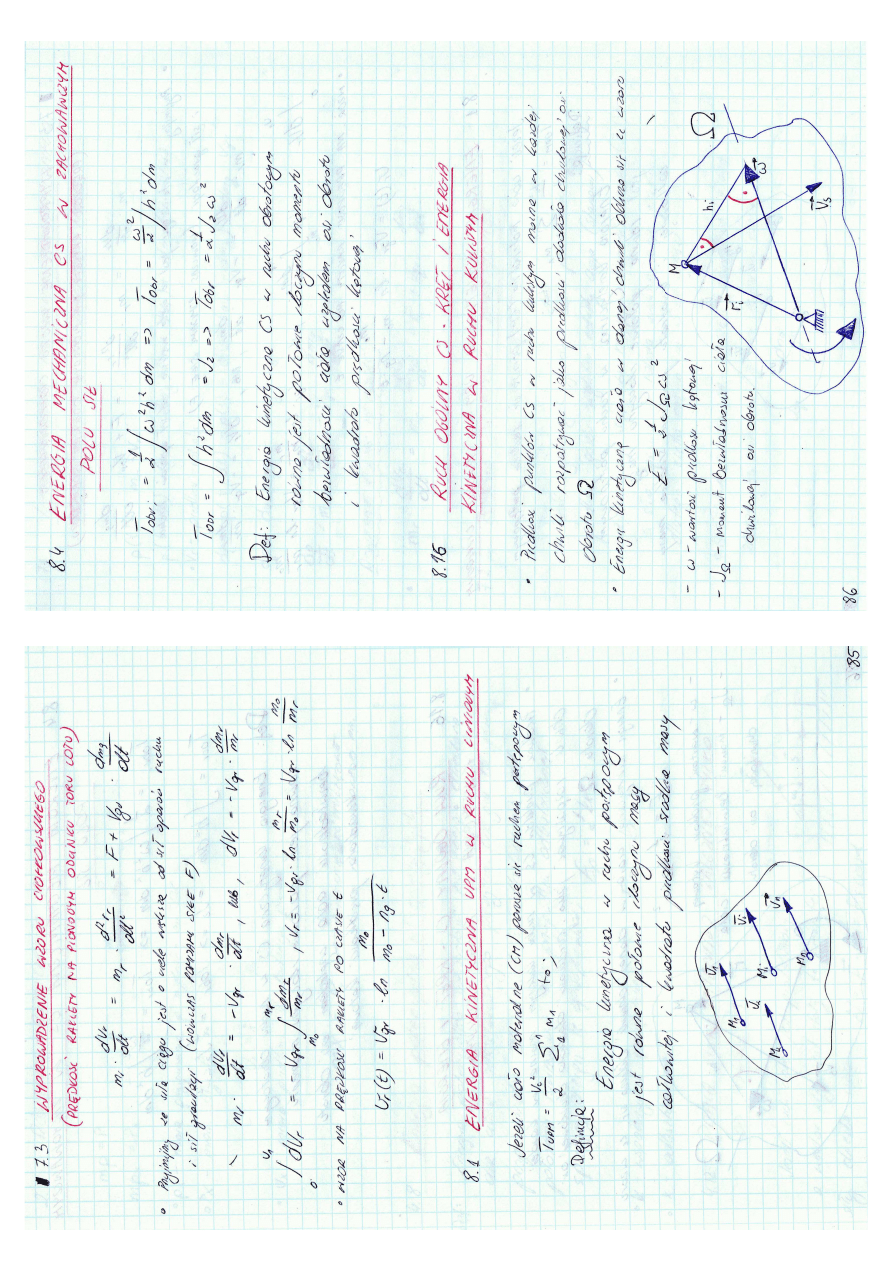 7.3 WYPROWADZENIE WZORU CIOŁKOWSKIEGO
(PRĘDKOŚĆ RAKIETY NA PIONOWYM ODCINKU TORU LOTU)
m_i · dV_r/dt = m_r · d²r_r/dt² = F + V_gr · dm_g/dt
• Przyjmijmy że siła ciągu jest o wiele większa od sił oporów ruchu
i sił grawitacji (wówczas pomijamy siłę F)
m_r · dV_r/dt = -V_gr · dm_r/dt, lub, dV_r = -V_gr · dm_r/m_r
∫ dV_r = -V_gr ∫ dm_r/m_r, V_r = -V_gr · ln m_r/m_0 = V_gr · ln m_0/m_r
• WZÓR NA PRĘDKOŚĆ RAKIETY PO CZASIE t
V_r(t) = V_gr · ln m_0/(m_0 - n_g · t)
8.1 ENERGIA KINETYCZNA UPM W RUCHU LINIOWYM
Jeżeli ciało materialne (CM) porusza się ruchem postępowym
T_UPM = V_c²/2 Σ m_1 to;
Definicja:
Energia kinetyczna w ruchu postępowym
jest równa połowie iloczynu masy
całkowitej i kwadratu prędkości środka masy
85
8.4 ENERGIA MECHANICZNA CS W ZACHOWAWCZYM
POLU SIŁ
T_obr_i = 1/2 ∫ ω²h² dm => T_obr = ω²/2 ∫ h² dm
T_obr = ∫ h² dm = J_2 => T_obr = 1/2 J_2 ω²
Def: Energia kinetyczna CS w ruchu obrotowym
równa jest połowie iloczynu momentu
bezwładności ciała względem osi obrotu
i kwadratu prędkości kątowej
8.16 RUCH OGÓLNY CS · KRĘT I ENERGIA
KINETYCZNA W RUCHU KULISTYM
• Prędkość punktów CS w ruchu kulistym można w każdej
chwili rozpatrywać jako prędkości dookoła chwilowej osi
obrotu Ω
• Energię kinetyczną ciała w danej chwili oblicza się ze wzoru
E = 1/2 J_Ω ω²
- ω - wartość prędkości kątowej
- J_Ω - moment bezwładności ciała
chwilowej osi obrotu.
M
h_i
r_i
ω
V_s
Ω
86